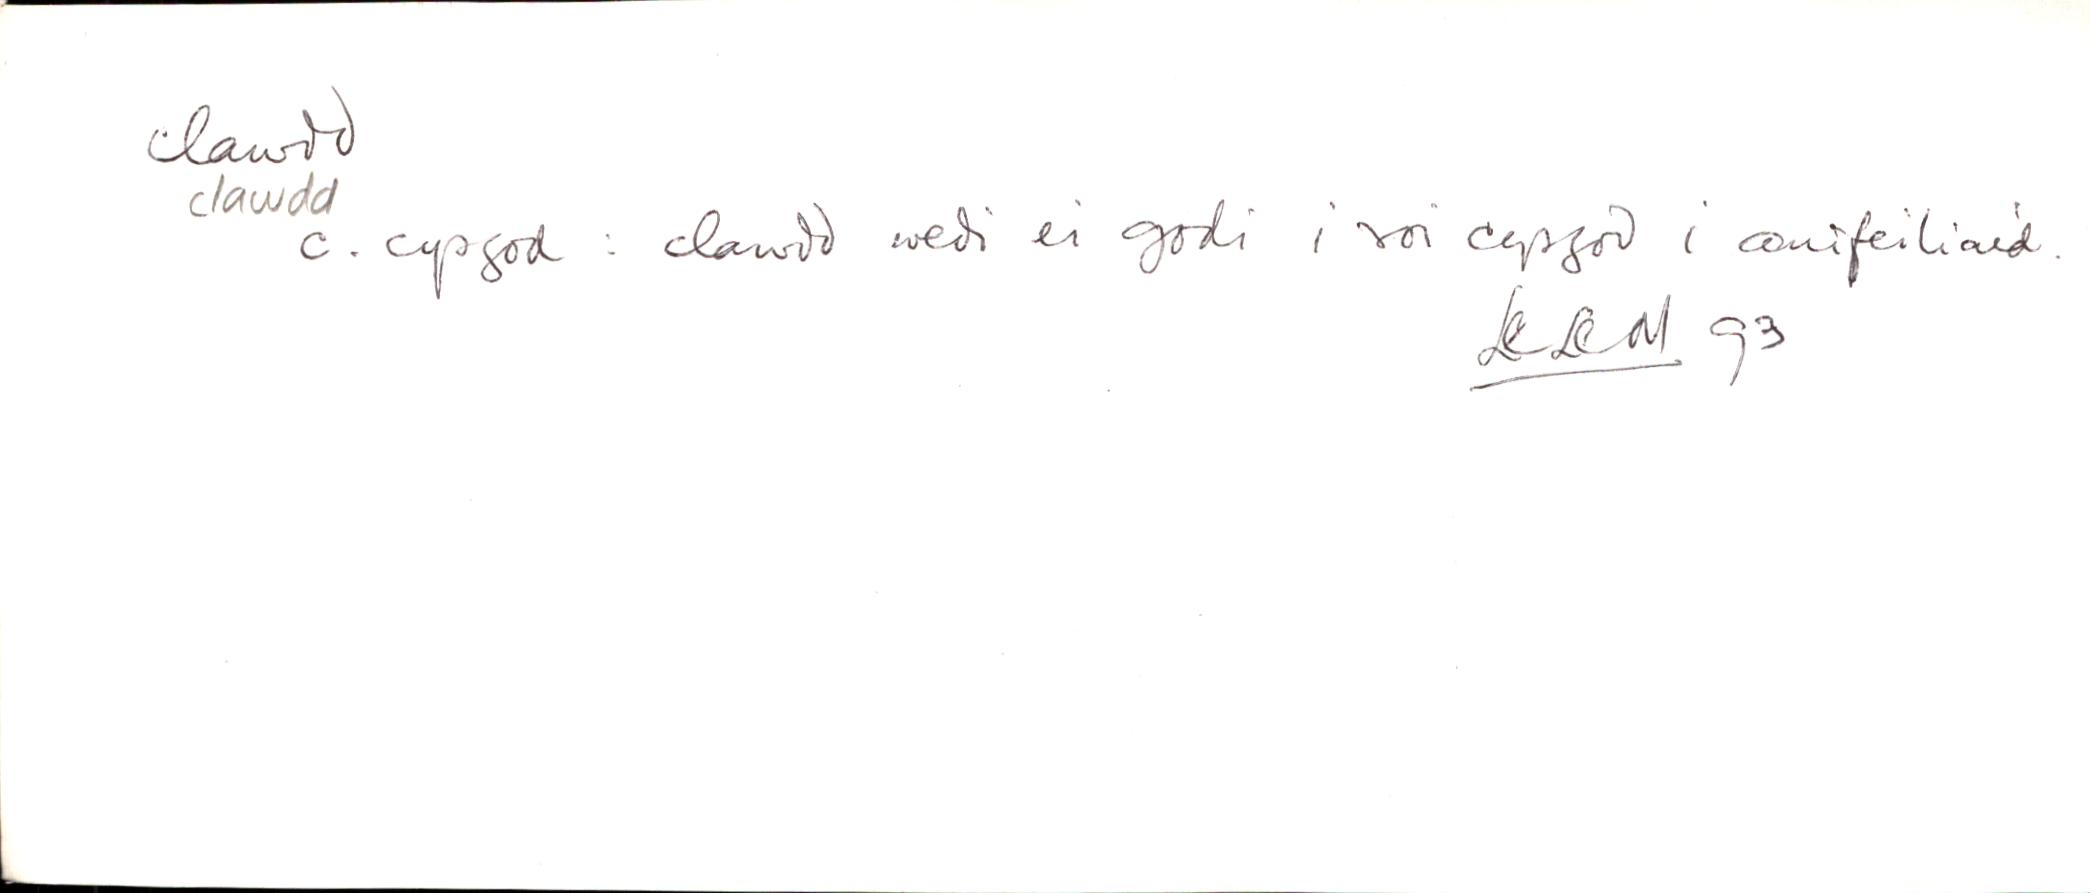 clawdd
clawdd
c. cysgod : clawdd wedi ei godi i roi cysgod i anifeiliaid.
93